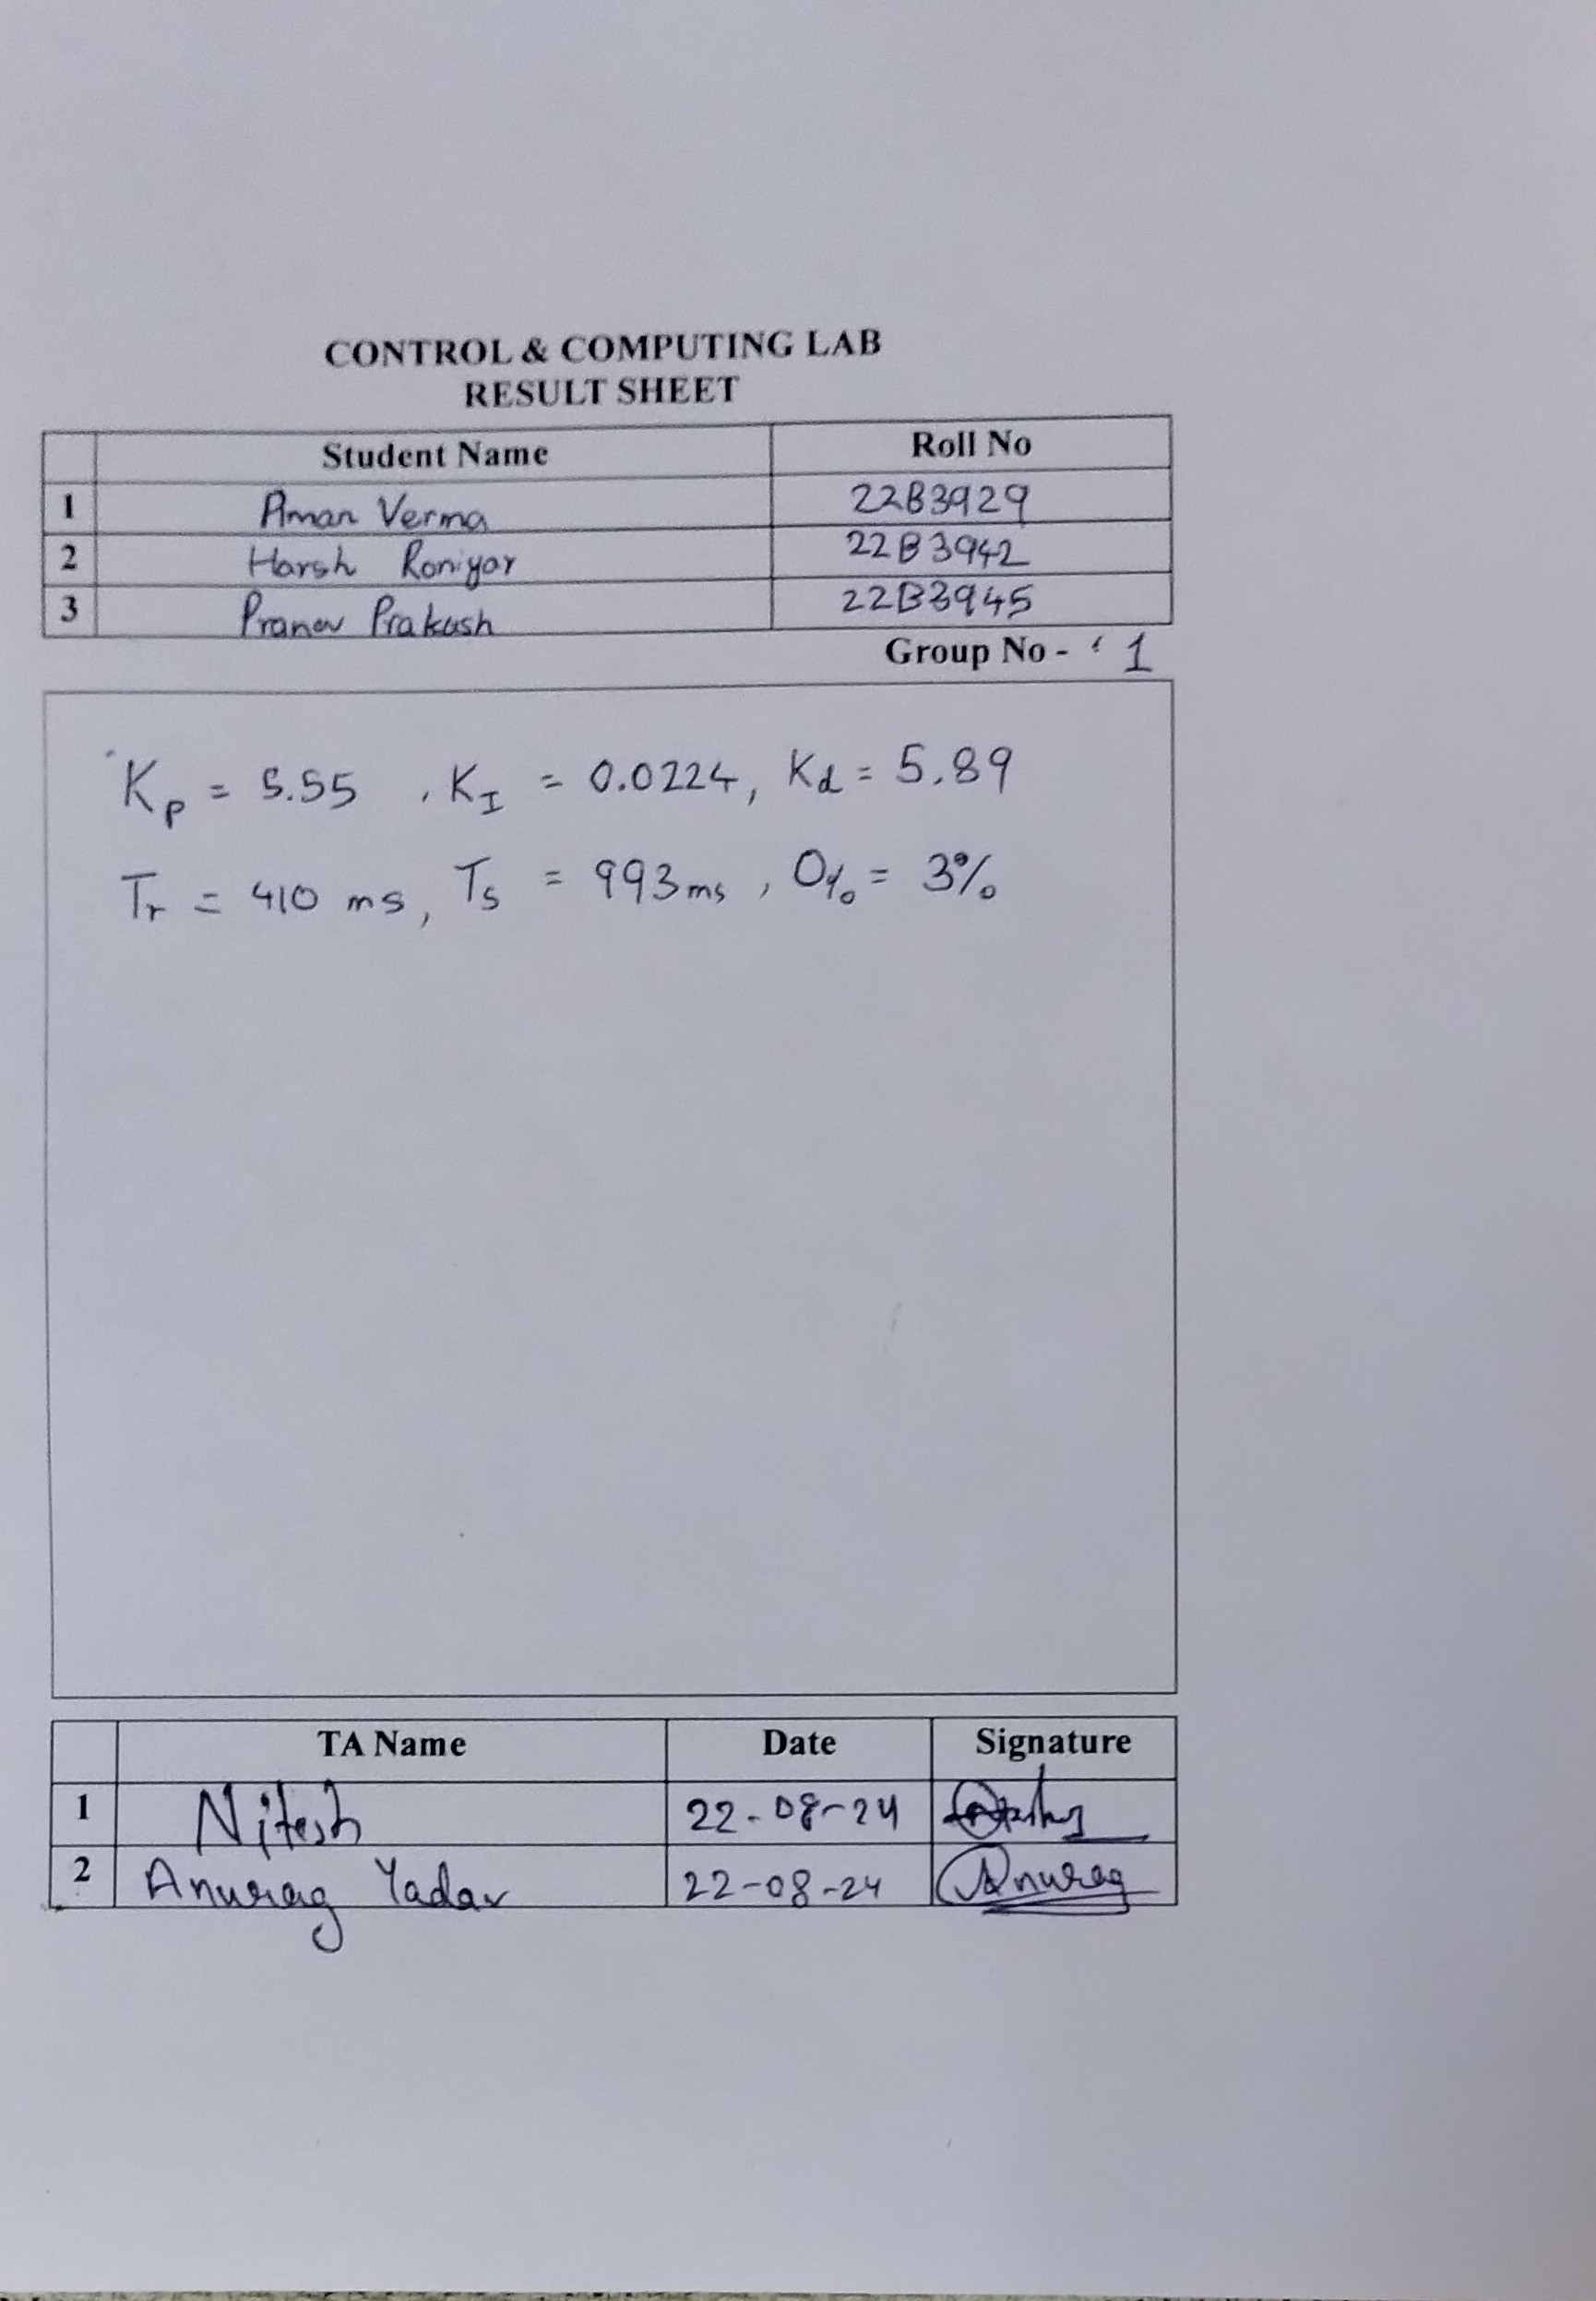 CONTROL & COMPUTING LAB
RESULT SHEET
Student Name Roll No
1 Aman Verma 22B3929
2 Harsh Roniyar 22B3942
3 Pranav Prakash 22B3945
Group No - 1
Kp = 5.55 , KI = 0.0224, Kd = 5.89
Tr = 410 ms, Ts = 993ms, O% = 3%
TA Name Date Signature
1 Nitesh 22-08-24
2 Anurag Yadav 22-08-24 Anurag